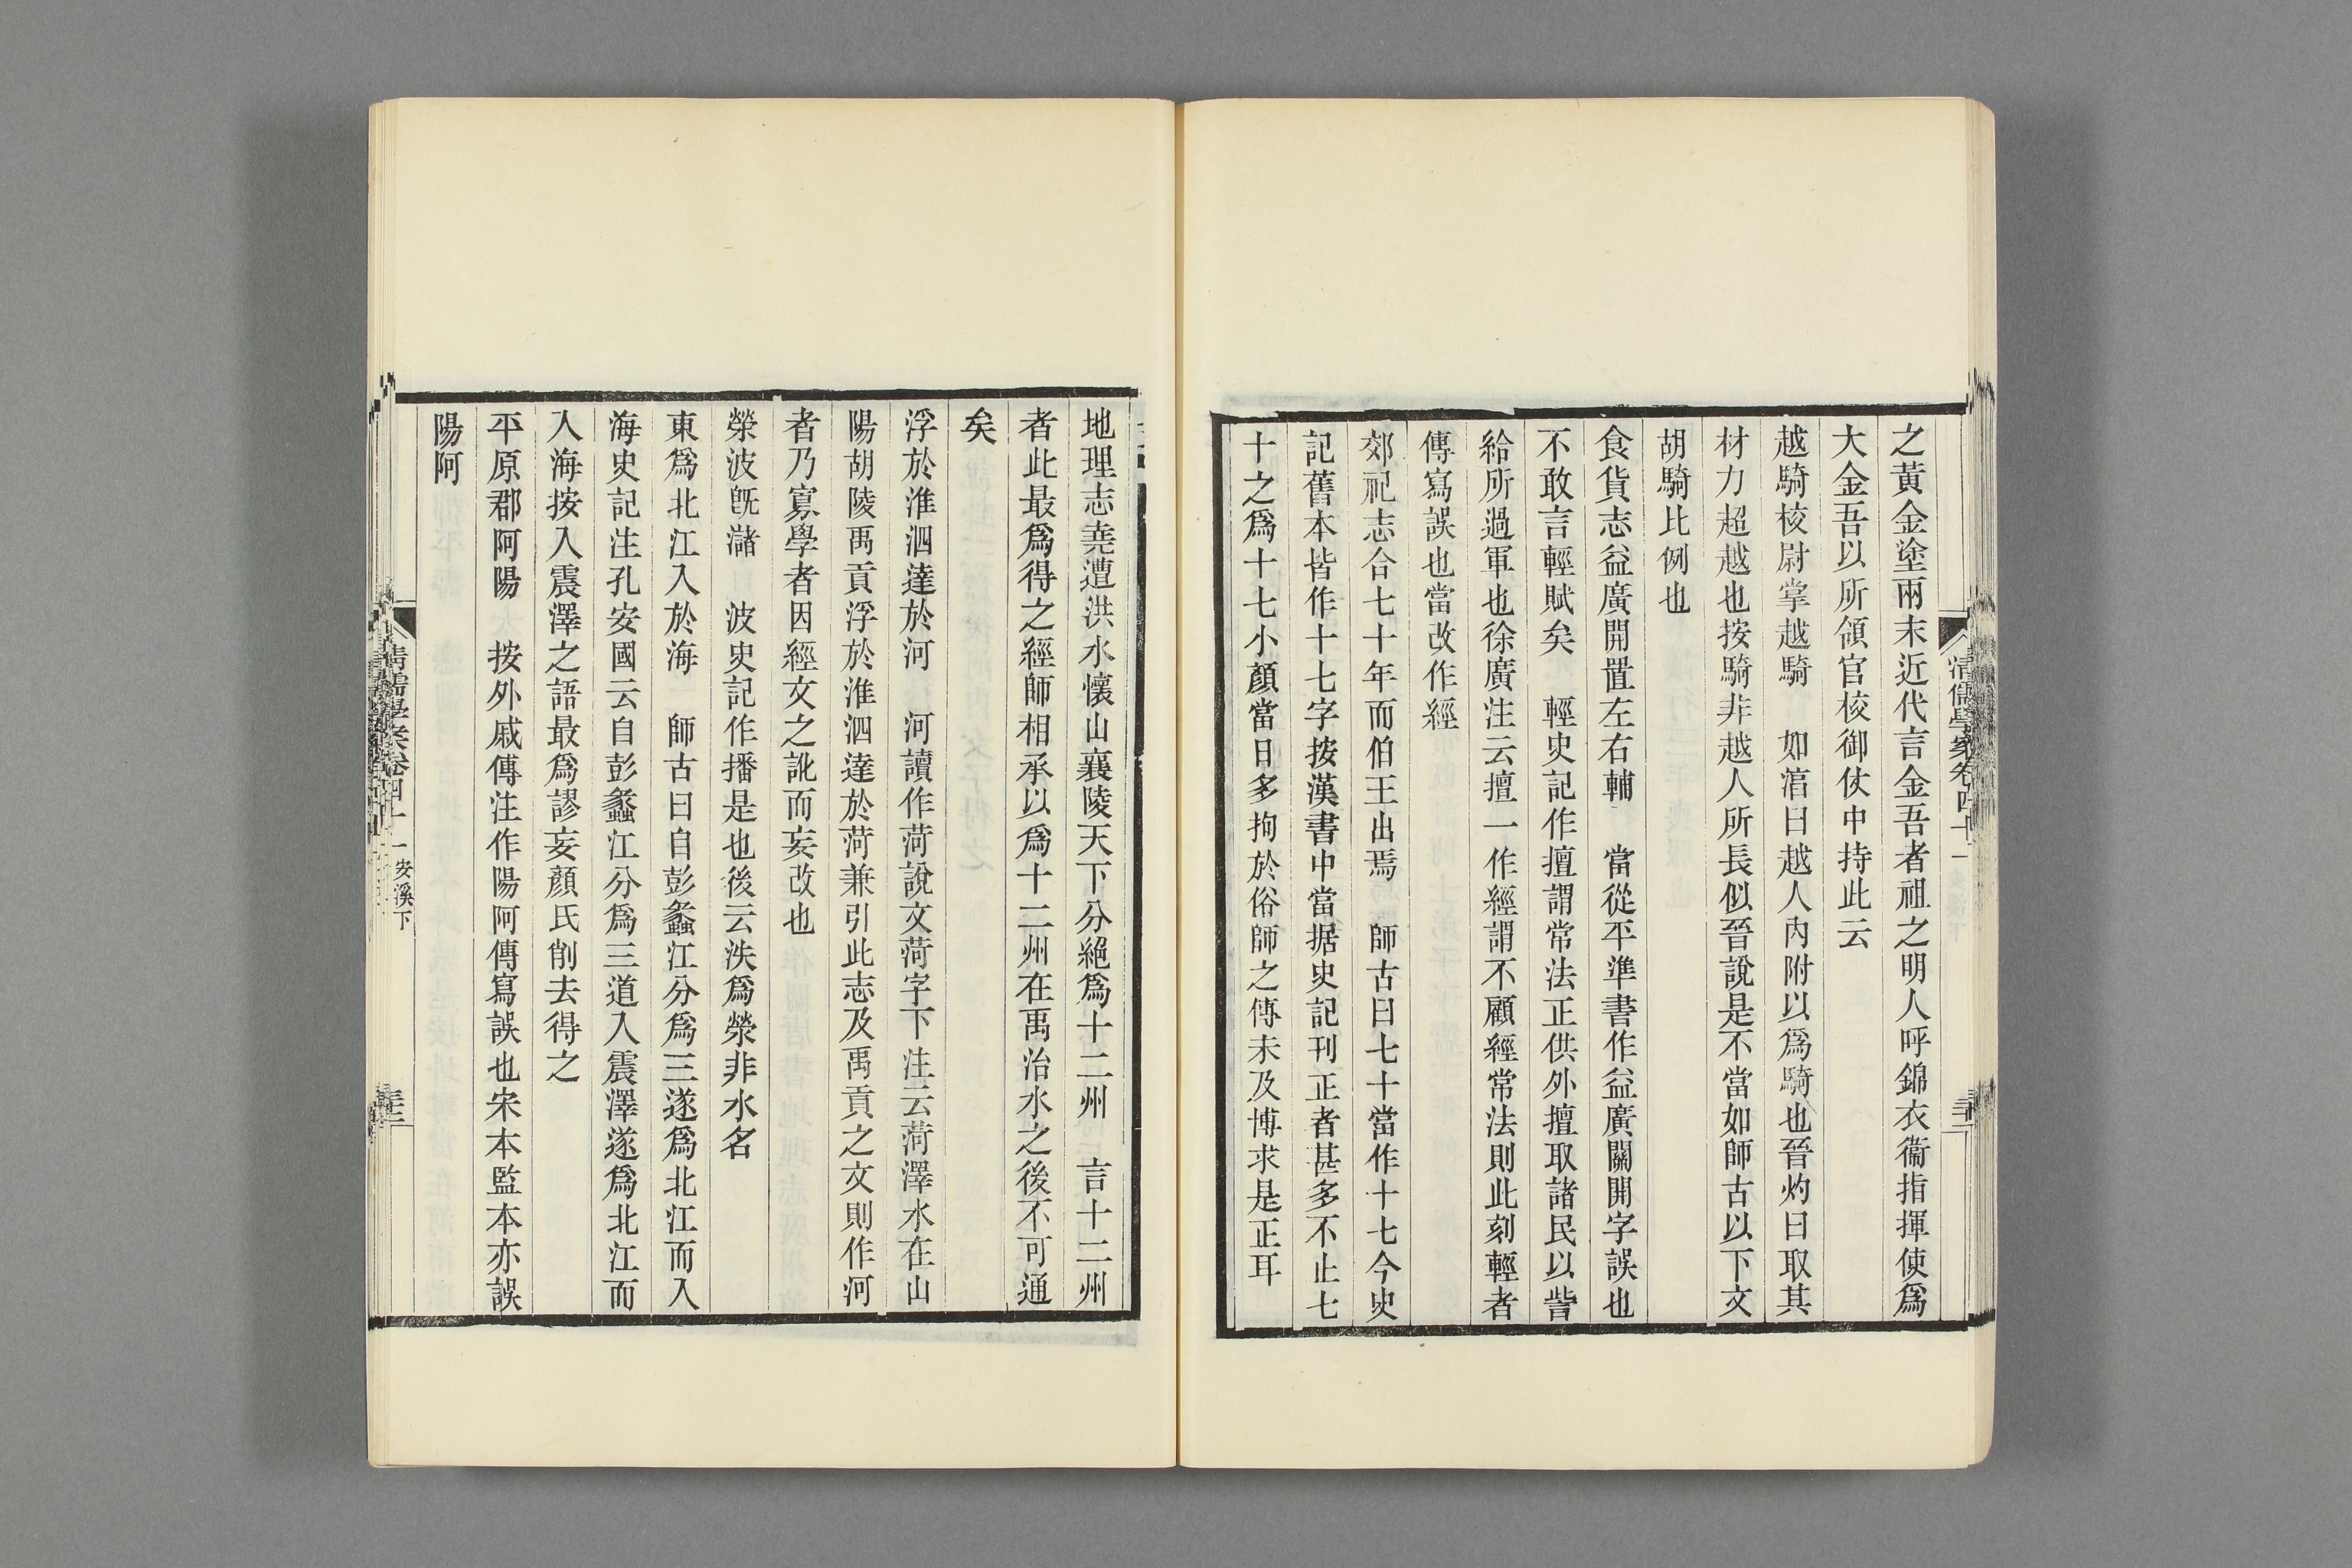 之黃金塗兩末近代言金吾者祖之明人呼錦衣衞指揮使爲
大金吾以所領官校御仗中持此云
越騎校尉掌越騎　如淳曰越人內附以爲騎也晉灼曰取其
材力超越也按騎非越人所長似晉說是不當如師古以下文
胡騎比例也
食貨志益廣開置左右輔　當從平準書作益廣關開字誤也
不敢言輕賦矣　輕史記作擅謂常法正供外擅取諸民以訾
給所過軍也徐廣注云擅一作經謂不顧經常法則此刻輕者
傳寫誤也當改作經
郊祀志合七十年而伯王出焉　師古曰七十當作十七今史
記舊本皆作十七字按漢書中當据史記刊正者甚多不止七
十之爲十七小顏當日多拘於俗師之傳未及博求是正耳
清儒學案卷四十一
地理志堯遭洪水懷山襄陵天下分絕爲十二州　言十二州
者此最爲得之經師相承以爲十二州在禹治水之後不可通
矣
浮於淮泗達於河　河讀作菏說文菏字下注云菏澤水在山
陽胡陵禹貢浮於淮泗達於菏兼引此志及禹貢之文則作河
者乃寡學者因經文之訛而妄改也
滎波旣瀦　波史記作播是也後云泆爲滎非水名
東爲北江入於海　師古曰自彭蠡江分爲三遂爲北江而入
海史記注孔安國云自彭蠡江分爲三道入震澤遂爲北江而
入海按入震澤之語最爲謬妄顏氏削去得之
平原郡阿陽　按外戚傳注作陽阿傳寫誤也宋本監本亦誤
陽阿
清儒學案卷四十一　安溪下